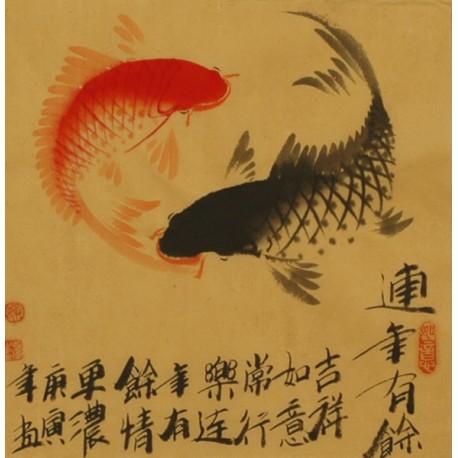 連年有餘
吉祥
如意
常行
樂连
年有
餘情
更濃
庚寅
年畫